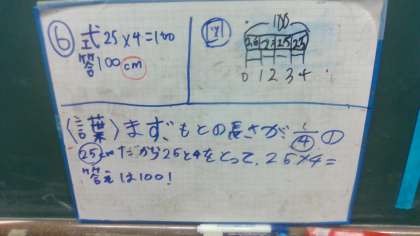 ⑥ 式 25×4=100
答 100cm
図
100
25 25 25 25
0 1 2 3 4
〈言葉〉まず、もとの長さが 1/4 ①
25cmだから25と4をとって、25×4=
答えは100!